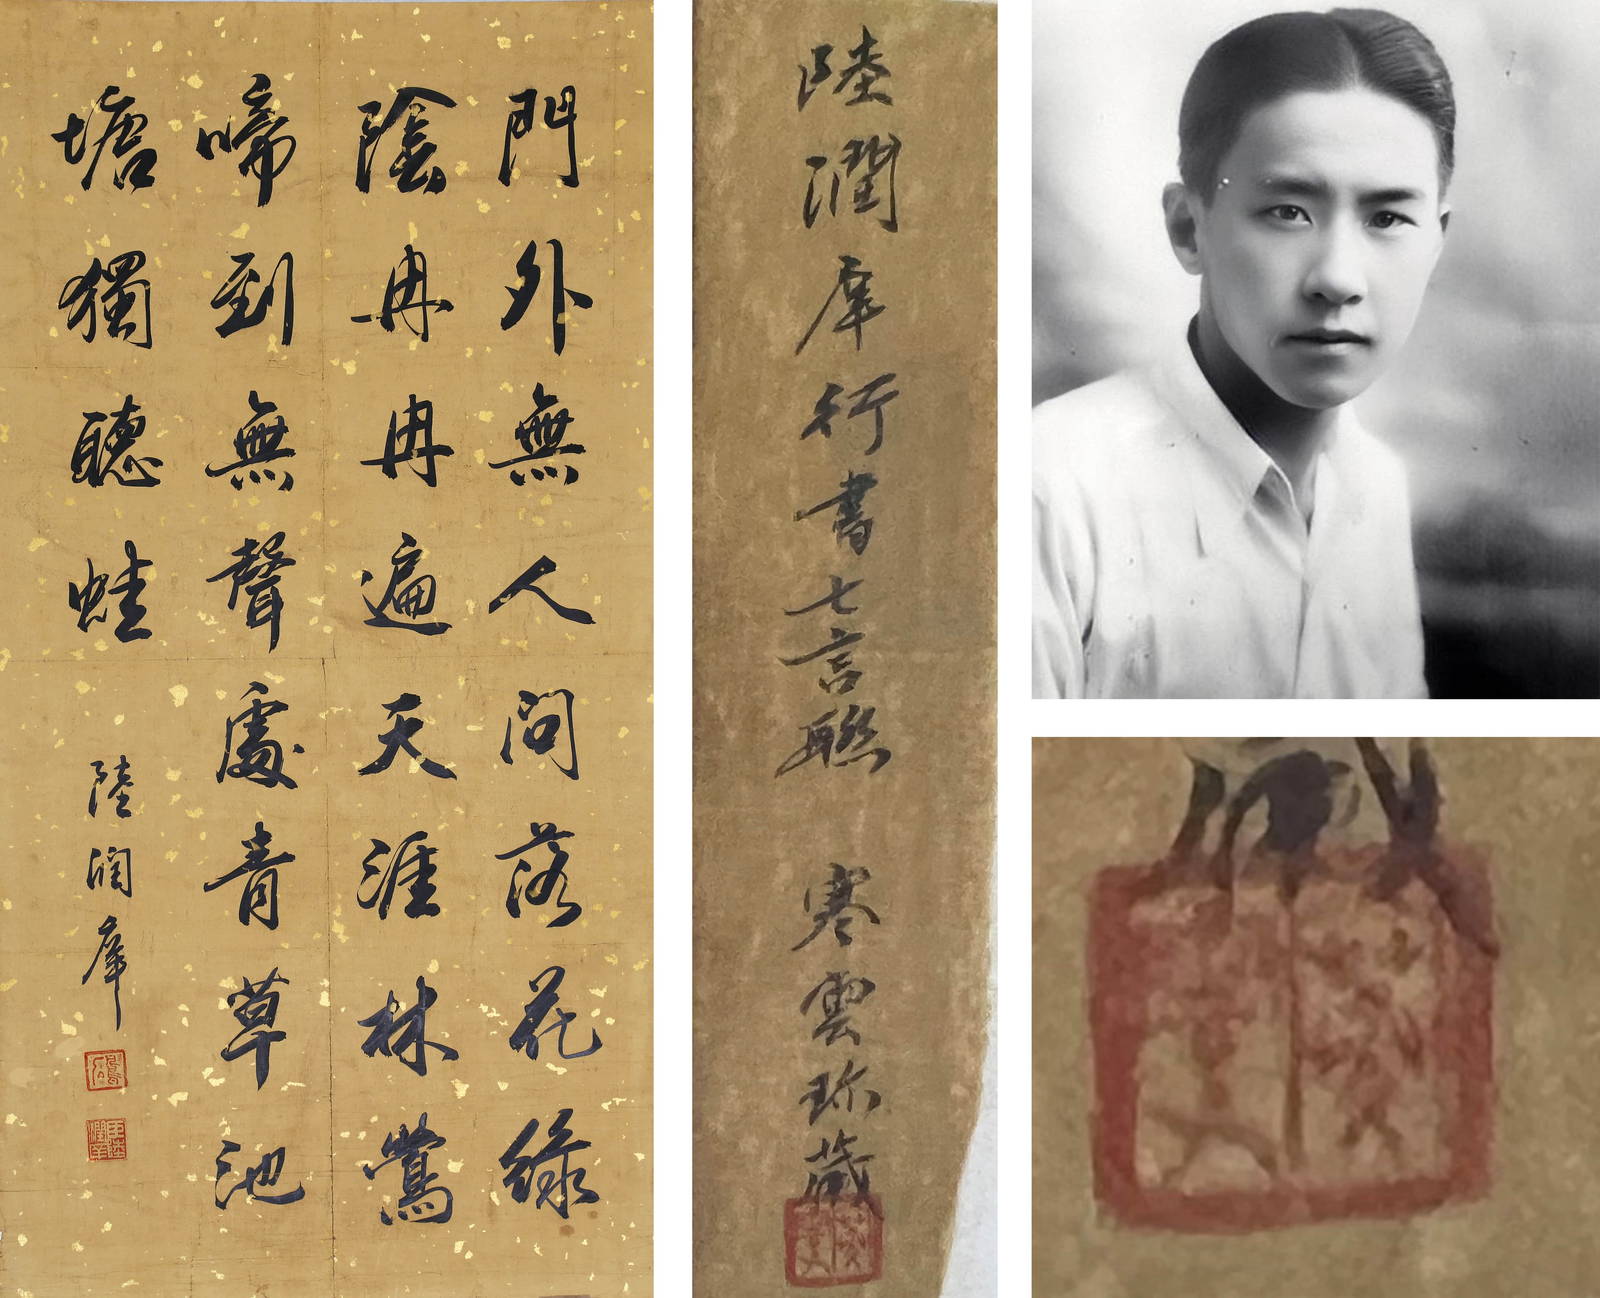 門外無人問落花綠
陰冉冉遍天涯林鶯
啼到無聲處青草池
塘獨聽蛙
陸潤庠
鳳石
臣陸潤庠
陸潤庠行書七言聯 寒雲珍藏